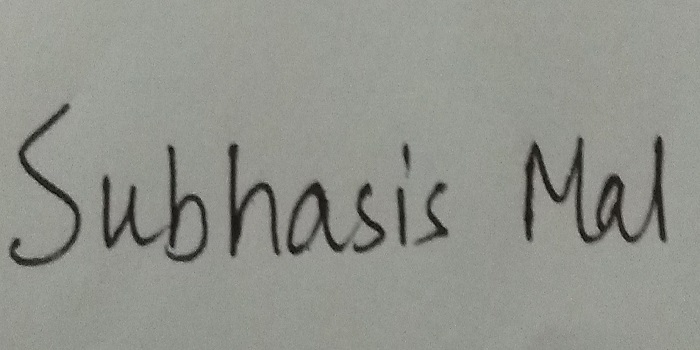 Subhasis Mal